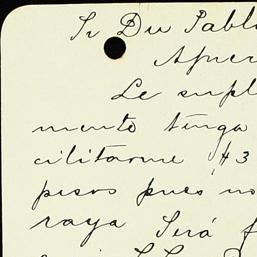 Sr Dn Pabl
Apre
Le supl
mento tenga
cilitarme $43
pesos pues no
raya Será f